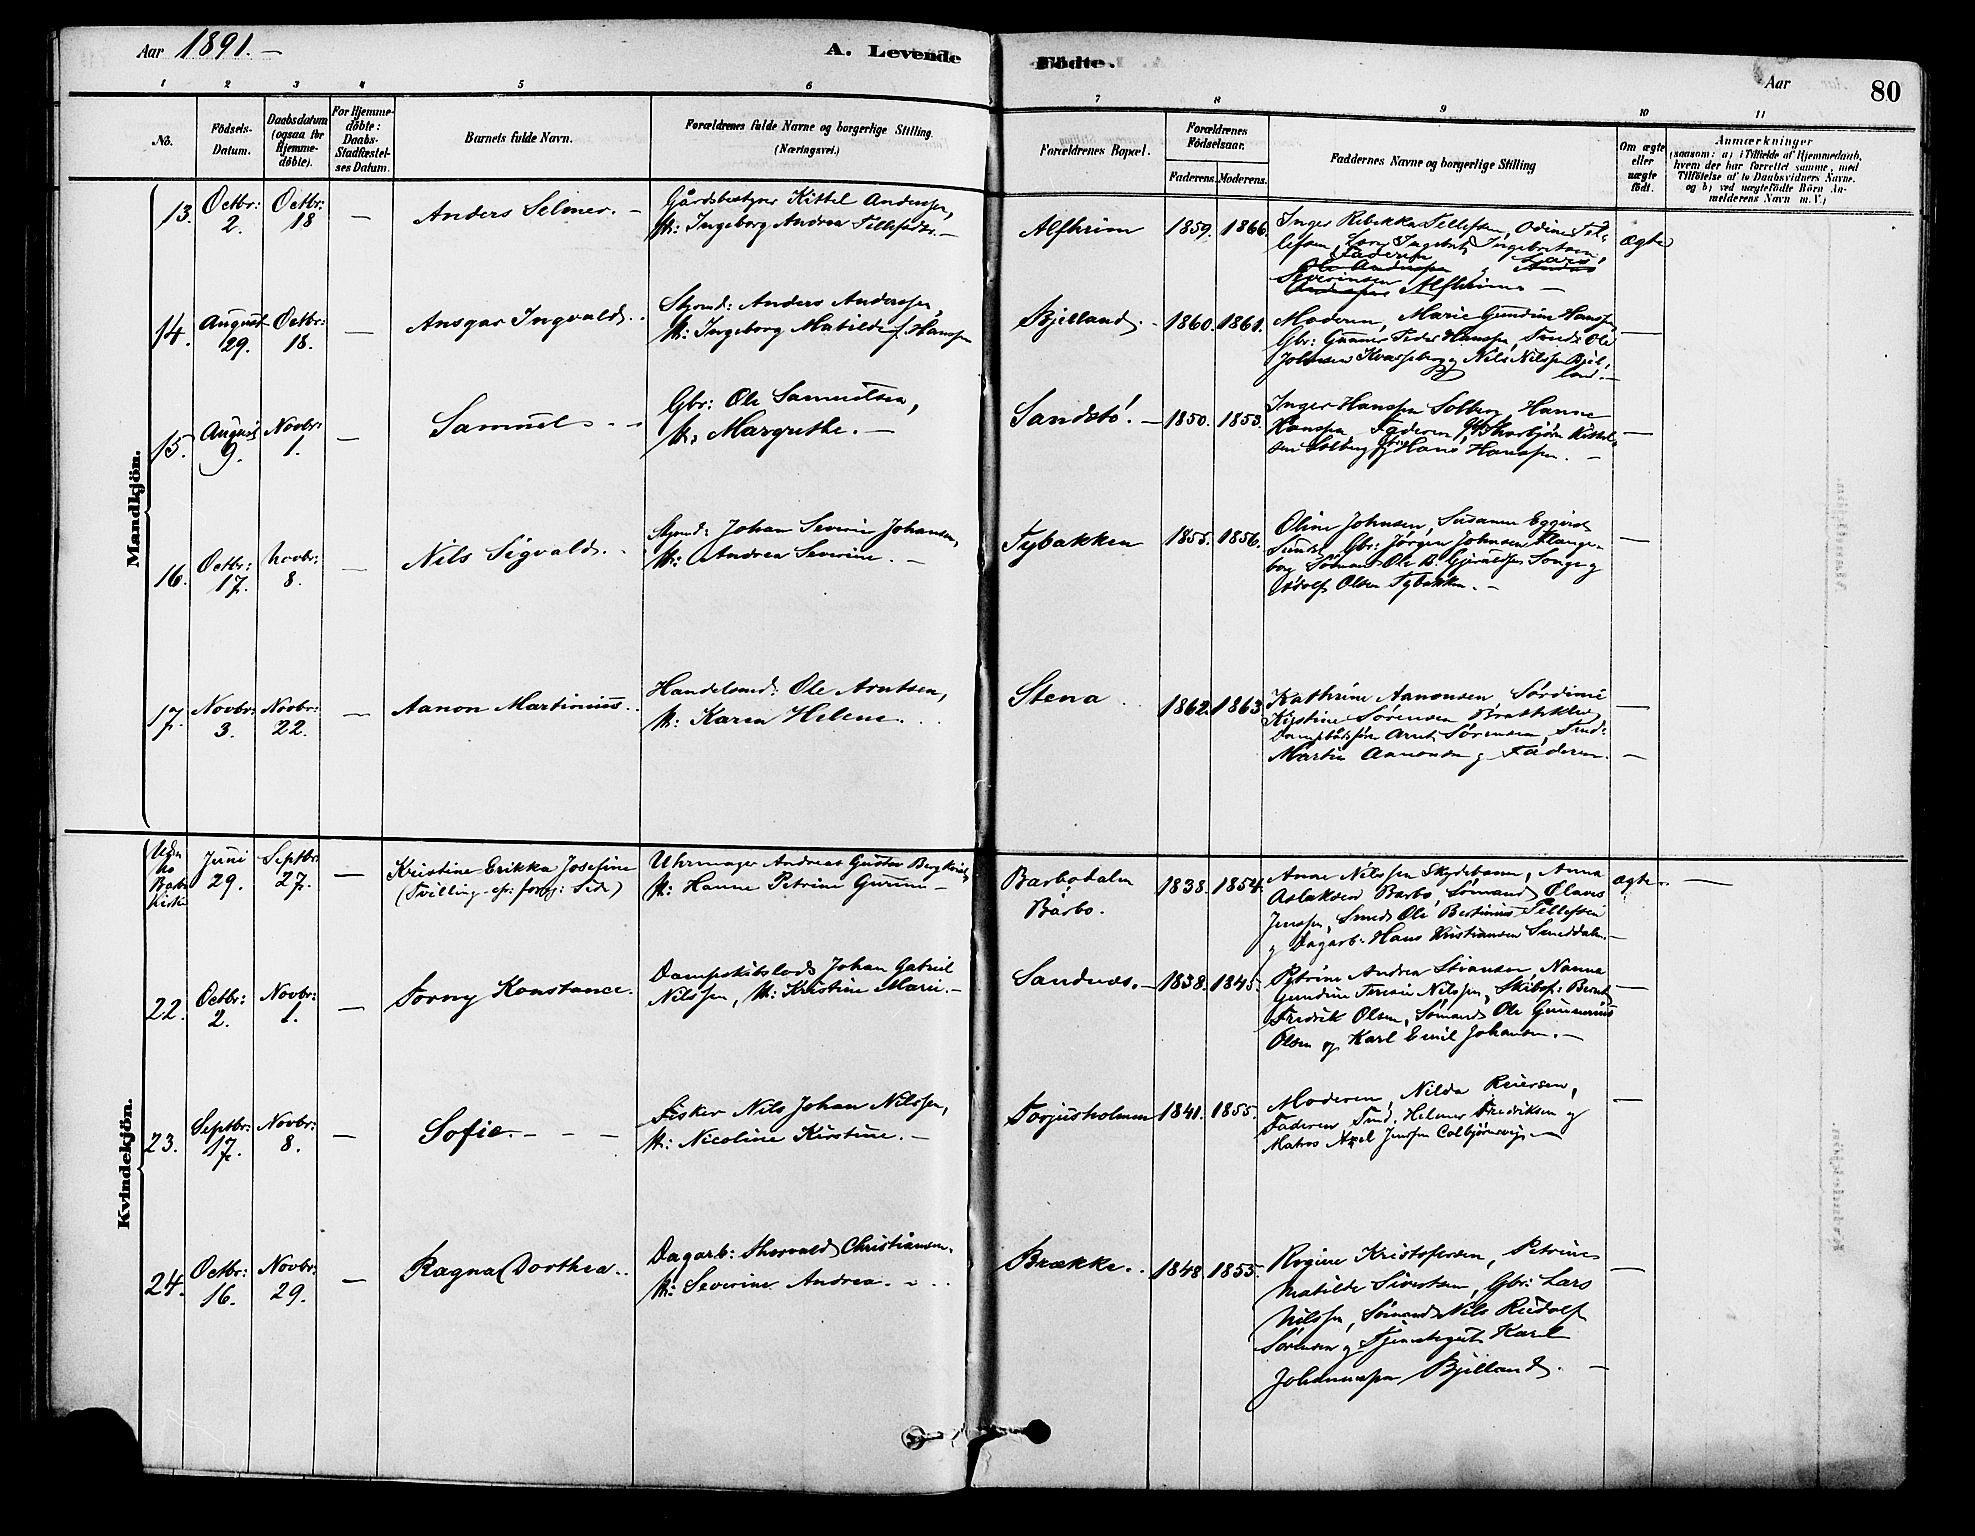 Aar 1891.— A. Levende Födte. Aar 80
1 2 3 4 5 6 7 8 9 10 11
No.
Födsels-
Datum.
Daabsdatum
(ogsaa for
Hjemme-
döbte).
For Hjemme-
döbte:
Daabs-
Stadfæstel-
ses Datum.
Barnets fulde Navn.
Forældrenes fulde Navne og borgerlige Stilling.
(Næringsvei.)
Forældrenes Bopæl.
Forældrenes
Födselsaar.
Faderens. Moderens.
Faddernes Navne og borgerlige Stilling
Om ægte
eller
uægte
födt.
Anmærkninger
(saasom: a) i Tilfælde af Hjemmedaab,
hvem der har forrettet samme, med
Tilföielse af to Daabsvidners Navne.
og b) ved uægtefödte Börn An-
melderens Navn m. V.)
Mandkjön.
13. Octbr: 2. Octbr: 18 — Anders Selmer. —
Gårdsbestyrer Kittel Anderssen,
H: Ingeborg Andrea Tellefsdtr. —
Alfheim 1859. 1866.
Inger Rebekka Tellefsen, Odine Tel-
lefsen, Ingebret Ingebretsen,
Faderen Lars
Severinsen
Alfheim —
Ægte
14. August 29. Octbr: 18. — Ansgar Ingvald. .
Styrmd: Anders Anderssen,
H: Ingeborg Matilde f. Hanssen
Bjelland. — 1860. 1861.
Moderen, Marie Gundine Hanssen
Gbr: Gunner Peder Hanssen, Tmd: Ole
Johnsen Kvasseborg og Nils Nilssen Bjel-
land. —
—
15. August 9. Novbr: 1. — Samuel. .
Gbr: Ole Samuelsen,
H: Margrethe. —
Sandstö. — 1850. 1853.
Inger Hanssen Solberg, Hanne
Hanssen Faderen, Gbr: Thorbjörn Kittel-
sen Solberg og Hans Hanssen. —
—
16. Octbr: 17. Novbr: 8. — Nils Sigvald. .
Styrmd: Johan Severin Johansen,
H: Andrea Severine. —
Tybakken 1855. 1856.
Oline Johnsen, Susanne Eggers
Gbr: Jörgen Johnsen Klange-
borg Sömand Ole B. Gjeruldsen Songe og
Adolf Olsen Tybakken. —
—
17. Novbr: 3. Novbr: 22. — Aanon Martinius. .
Handelsmd: Ole Arntsen,
H: Karen Helene. . .
Stena . 1862. 1863.
Kathrine Aanonsen, Sördine
Kistine Sörensen Bratteklev,
Dampbådförer Arnt Sörensen, Tmd:
Martin Aanonsen og Faderen. —
—
Kvindekjön.
Uden No Barbo Kirke Juni 29. Septbr: 27. — Kristine Erikka Josefine
(Tvilling cfr: forrg: Side)
Uhrmager Andreas Gustav Bergkvist,
H: Hanne Petrine Gurine —
Barbodalen
Barbo. 1838. 1854.
Anne Nilssen Skydebanen, Anna
Aslaksen Barbo, Sömand Olaves
Jenssen, Smed Ole Bertinius Tellefsen
og Dagarb: Hans Kristiansen Smeddalen. —
Ægte. —
22. Octbr: 2. Novbr: 1. — Torny Konstance.
Dampskibslods Johan Gabriel
Nilssen, H: Kristine Marie. —
Sandnæs. — 1838. 1845.
Petrine Andrea Svansen, Nanna
Gundine Teresie Nilssen, Skibsf: Bernt
Fredrik Olsen, Sömand Ole Gunnerius
Olsen og Karl Emil Johansen. —
—
23. Septbr: 17. Novbr: 8. — Sofie. — — —
Fisker Nils Johan Nilssen,
H: Nicoline Kirstine. —
Torjusholmen 1841. 1855.
Moderen, Nilda Reiersen,
Faderen Tmd: Helmer Fredriksen og
Matros Axel Jenssen Colbjörnsvig. —
—
24. Octbr: 16. Novbr: 29. — Ragna Dorthea. .
Dagarb: Thorvald Christiansen.
H: Severine Andrea. . .
Brække. . 1848 1855.
Regine Kristofersen, Petrine
Matilde Sivertsen, Gbr: Lars
Nilssen, Sömand Nils Rudolf
Sörensen og Tjenestegut Karl
Johannessen Bjelland. —
—